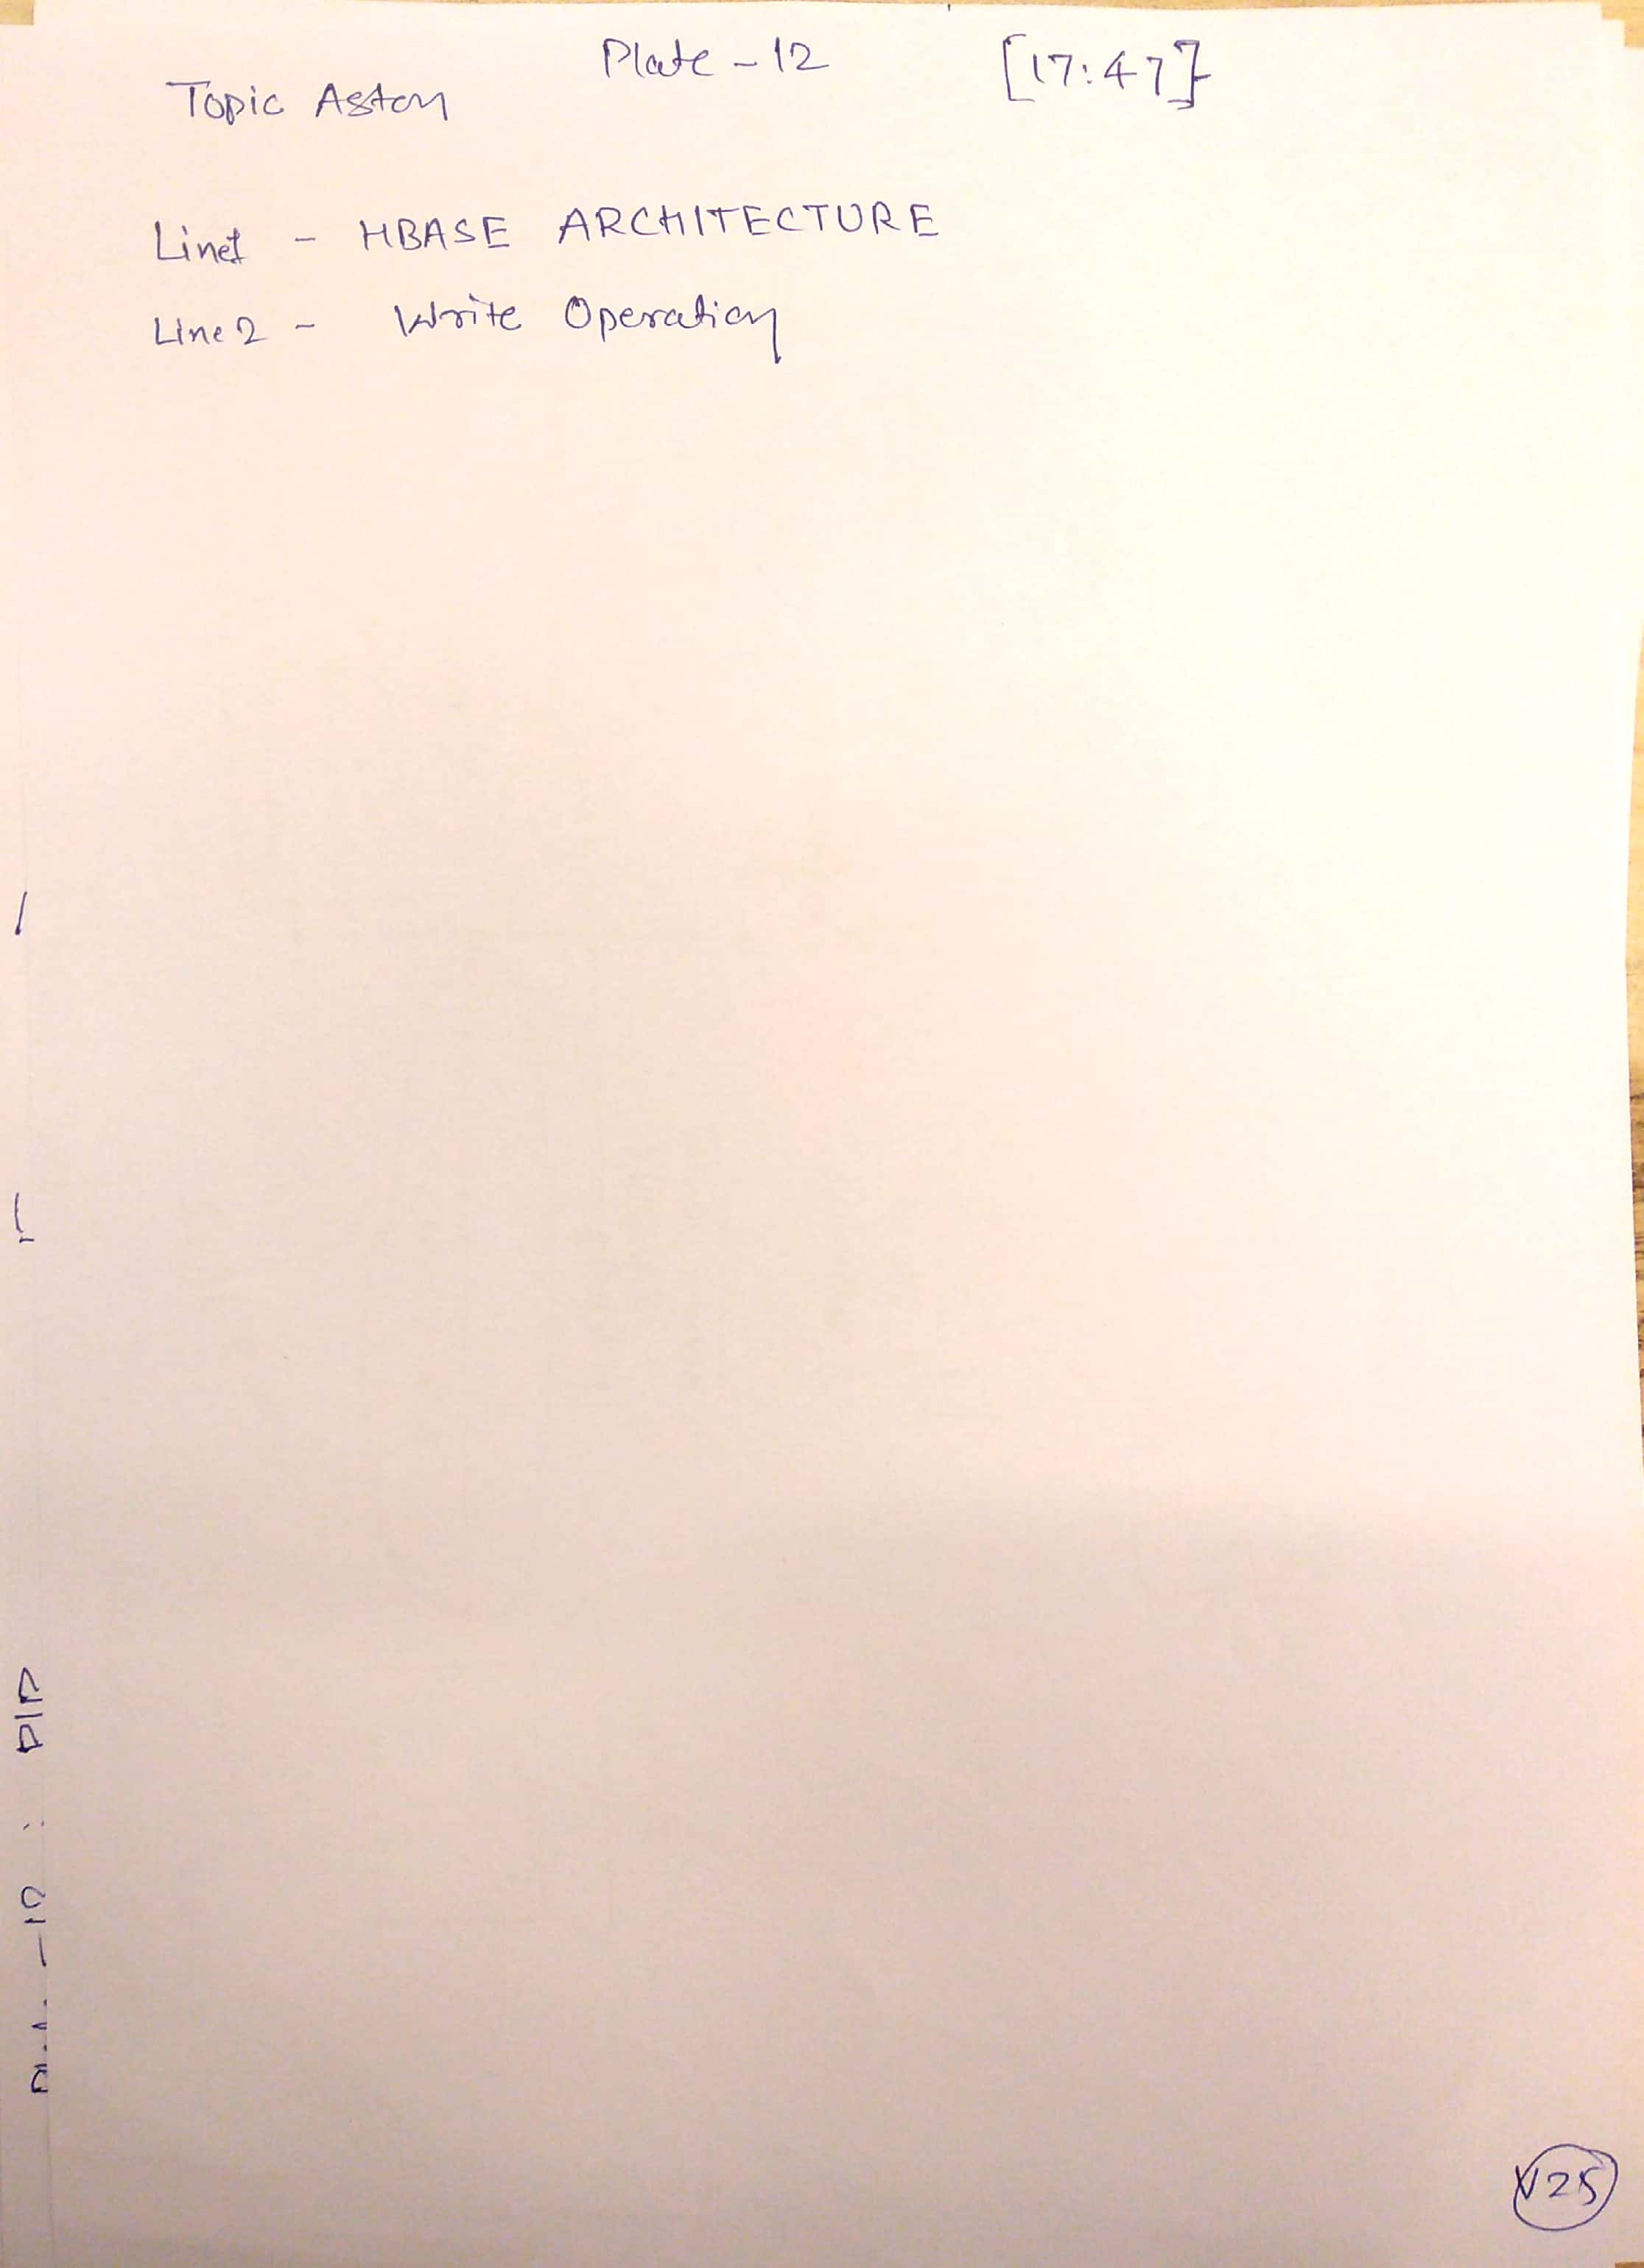 Plate - 12 [17:47]
Topic Aston
Line1 - HBASE ARCHITECTURE
Line 2 - Write Operation
V25